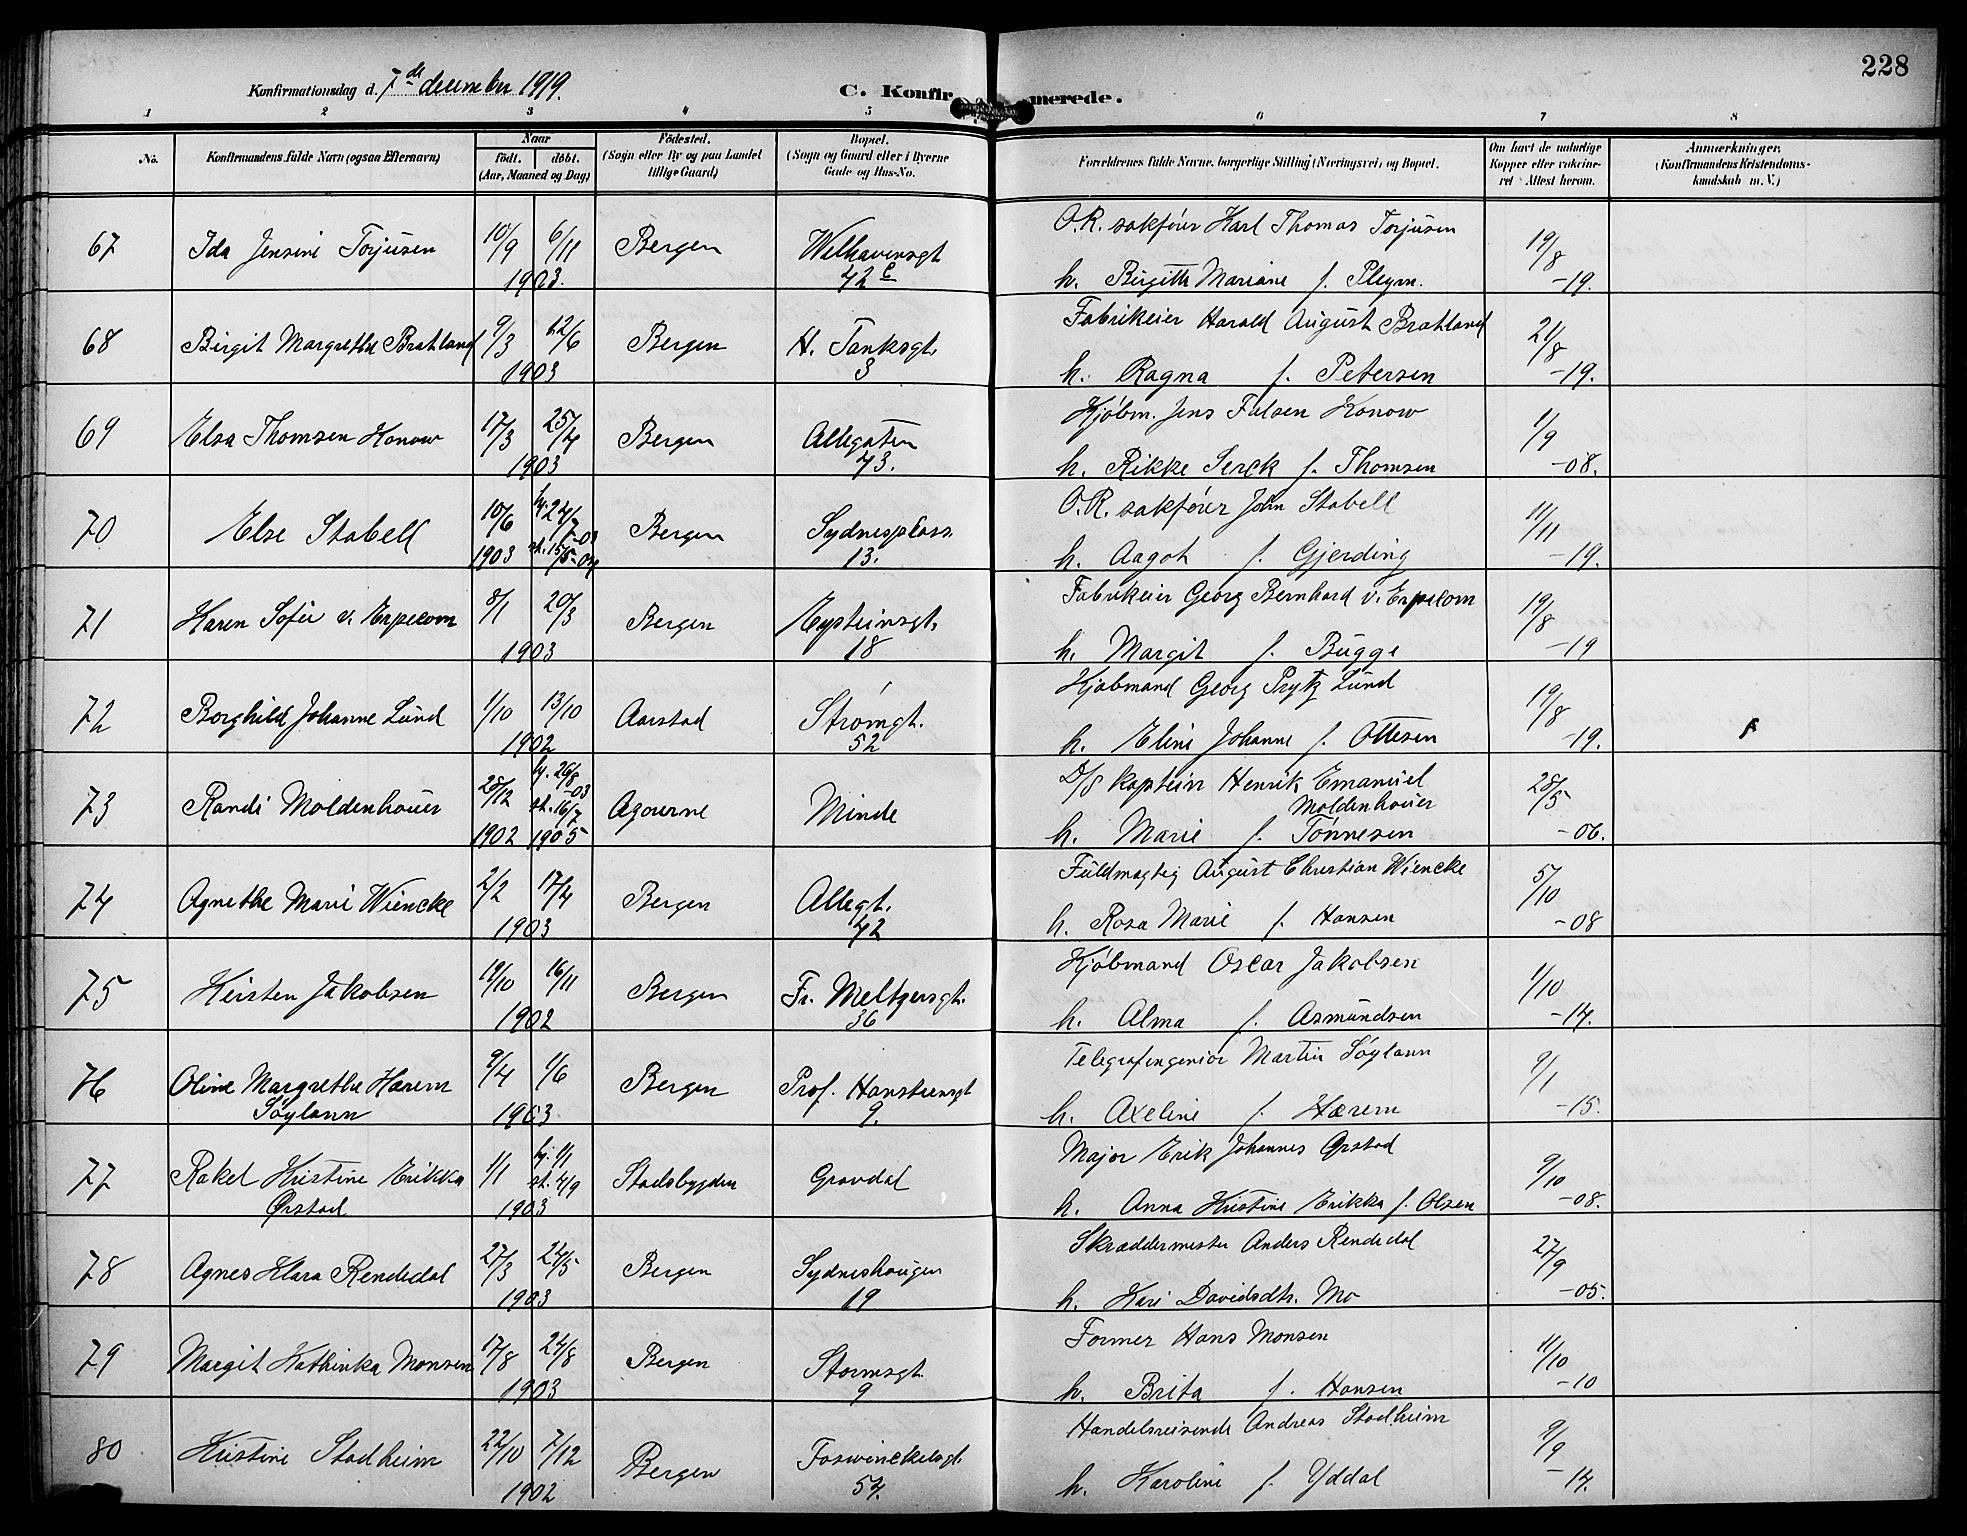 228
Konfirmationsdag d. 7de december 1919.
C. Konfirmerede.
1 2 3 4 5 6 7 8
No.
Konfirmandens fulde Navn (ogsaa Efternavn)
Naar
født. døbt.
(Aar, Maaned og Dag)
Fødested.
(Sogn eller By og paa Landet
tillige Gaard)
Bopæl.
(Sogn og Gaard eller i Byerne
Gade og Hus-No.
Forældrenes fulde Navne, borgerlige Stilling (Næringsvei) og Bopæl.
Om havt de naturlige
Kopper eller vakcine-
ret Attest herom.
Anmærkninger.
(Konfirmandens Kristendoms-
kundskab m. V.)
67 Ida Jensine Torjusen 10/9 6/11 Bergen Welhavensgt O.R. sakfører Karl Thomas Torjusen 19/8
1903. 42 c h. Birgitte Mariane f. Pleym. -19.
68 Birgit Margrethe Bratland 9/3 12/6 Bergen H. Tanksgt. Fabrikeier Harald August Bratland 21/8
1903 3 h. Ragna f. Petersen -19.
69 Elsa Thomsen Konow 17/3 25/4 Bergen Allegaten Kjøbm. Jens Falsen Konow 1/9
1903 43. h. Rikke Serck f. Thomsen -08.
70 Else Stabell 10/6 hj. 24/7-03 Bergen Sydnesplass. O.R. sakfører John Stabell 11/11
1903 st. 15/5-04 13. h. Aagot f. Gjerding -19.
71 Karen Sofie v. Erpecom 8/1 20/3 Bergen Eysteinsgt. Fabrikeier Georg Bernhard v. Erpecom 19/8
1903 18 h. Margit f. Bugge -19
72 Borghild Johanne Lund 1/10 13/10 Aarstad Strømgt. Kjøbmand Georg Prytz Lund 19/8
1902 52 h. Eline Johanne f. Ottesen -19.
73 Randi Moldenhauer 28/12 hj. 26/8-03 Agourne Minde D/S kaptein Henrik Emanuel 28/5
st. 16/7 Moldenhauer
1902 1905 h. Marie f. Tønnesen -06.
74 Agnethe Marie Wiencke 2/2 17/4 Bergen Allegt. Fuldmægtig August Christian Wiencke 5/10
1903 42 h. Rosa Marie f. Hansen -08
75 Kirsten Jakobsen 19/10 16/11 Bergen Fr. Meltzersgt. Kjøbmand Oscar Jakobsen 1/10
1902 36 h. Alma f. Asmundsen -14.
76 Oline Margrethe Hærem 9/4 1/6 Bergen Prof. Hansteensgt Telegrafingeniør Martin Søyland 9/1
Søyland 1903 9. h. Axeline f. Hærem -15.
77 Rakel Kristine Erikka 1/1 hj. 1/1 Stadsbygden Gravdal Major Erik Johannes Ørstad 9/10
Ørstad st. 4/9
1903 h. Anna Kristine Erikka f. Olsen -08.
78 Agnes Klara Rendedal 27/3 24/5 Bergen Sydneshaugen Skræddermester Anders Rendedal 27/9
1903 19 h. Kari Davidsdtr. Mo -05.
79 Margit Kathinka Monsen 17/8 24/8 Bergen Stormsgt. Former Hans Monsen 11/10
1903 9 h. Brita f. Hansen -10
80 Kristine Stadheim 22/10 7/12 Bergen Foswinckelsgt. Handelsreisende Andreas Stadheim 9/9
1902 54. h. Karoline f. Yddal -14.